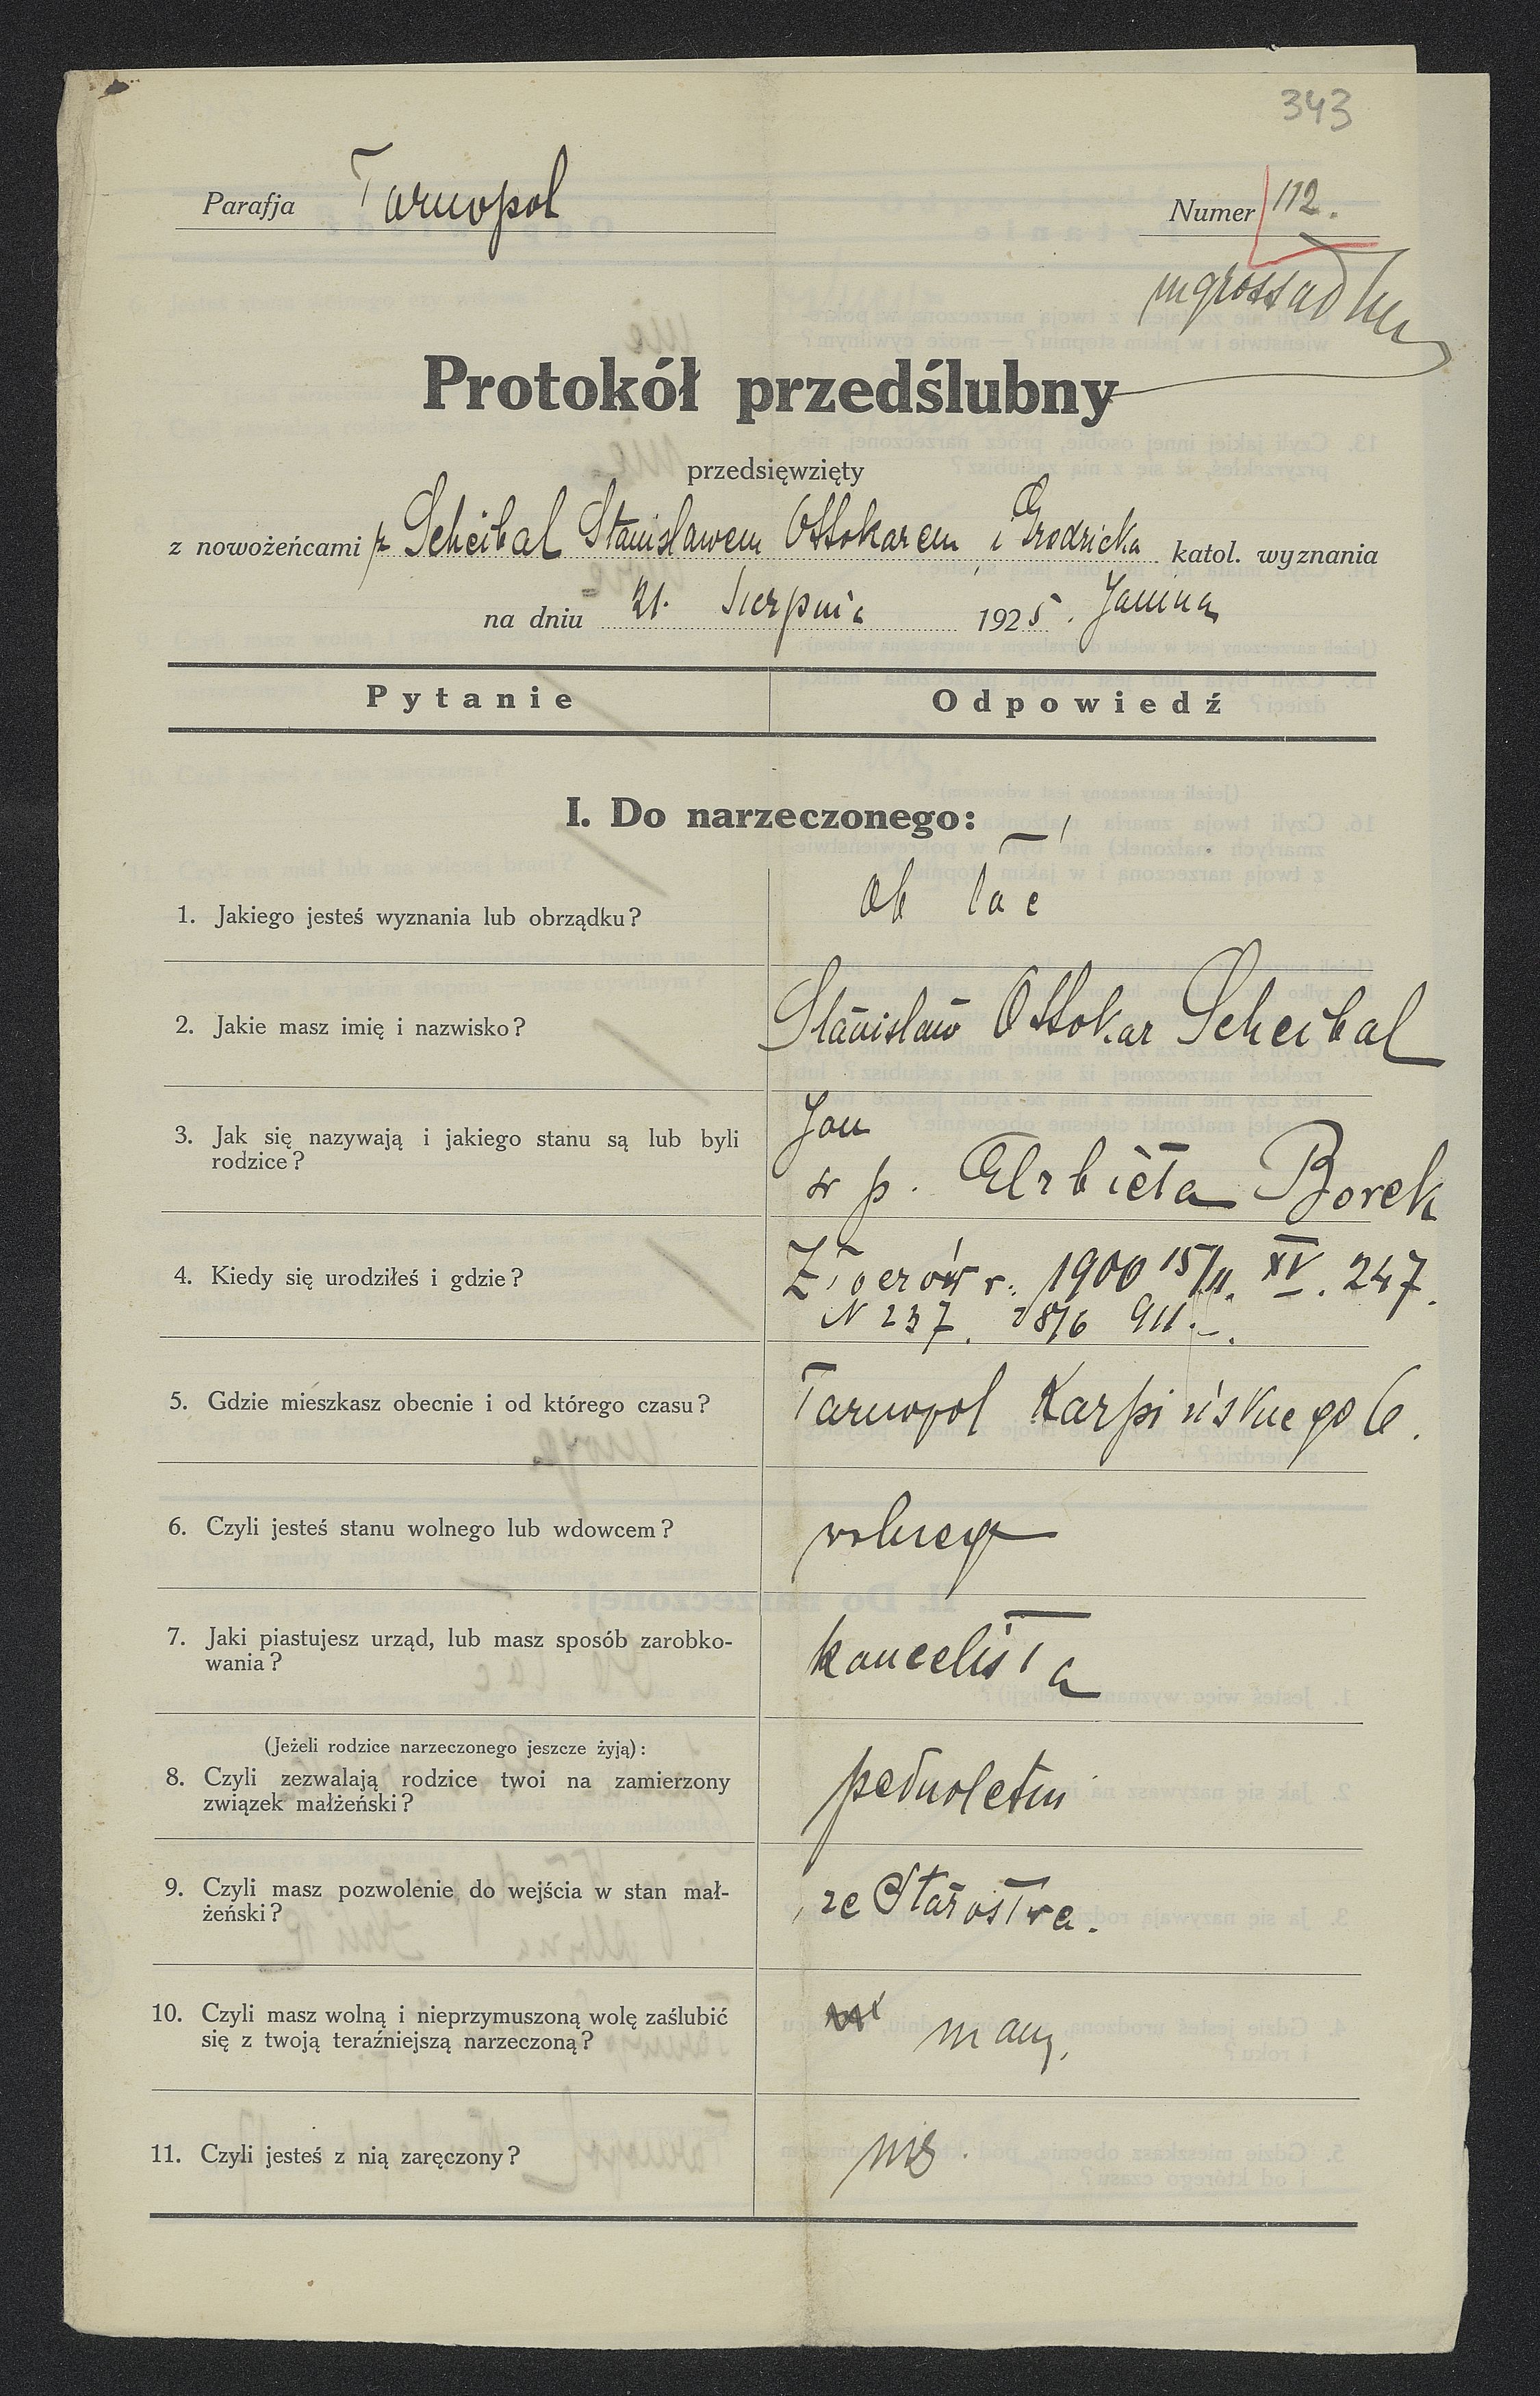 343
Parafja Tarnopol Numer 112.
ingrossad
Protokół przedślubny
przedsięwzięty
z nowożeńcami p Scheibal Stanisławem Ottokarem i Grodzicka katol. wyznania
na dniu 21. Sierpnia 1925. Janina
Pytanie Odpowiedź
I. Do narzeczonego:
1. Jakiego jesteś wyznania lub obrządku? Ob łać
2. Jakie masz imię i nazwisko? Stanisław Ottokar Scheibal
3. Jak się nazywają i jakiego stanu są lub byli Jan
rodzice? ś p. Elżbieta Borek
4. Kiedy się urodziłeś i gdzie? r. 1900 15/11. XV. 247.
N 237. 28/6 911.
5. Gdzie mieszkasz obecnie i od którego czasu? Tarnopol Karpińskiego 6.
6. Czyli jesteś stanu wolnego lub wdowcem? wolnego
7. Jaki piastujesz urząd, lub masz sposób zarobko- kancelista
wania?
(Jeżeli rodzice narzeczonego jeszcze żyją):
8. Czyli zezwalają rodzice twoi na zamierzony pełnoletni
związek małżeński?
9. Czyli masz pozwolenie do wejścia w stan mał- ze Starostwa.
żeński?
10. Czyli masz wolną i nieprzymuszoną wolę zaślubić mam.
się z twoją teraźniejszą narzeczoną?
11. Czyli jesteś z nią zaręczony? nie.